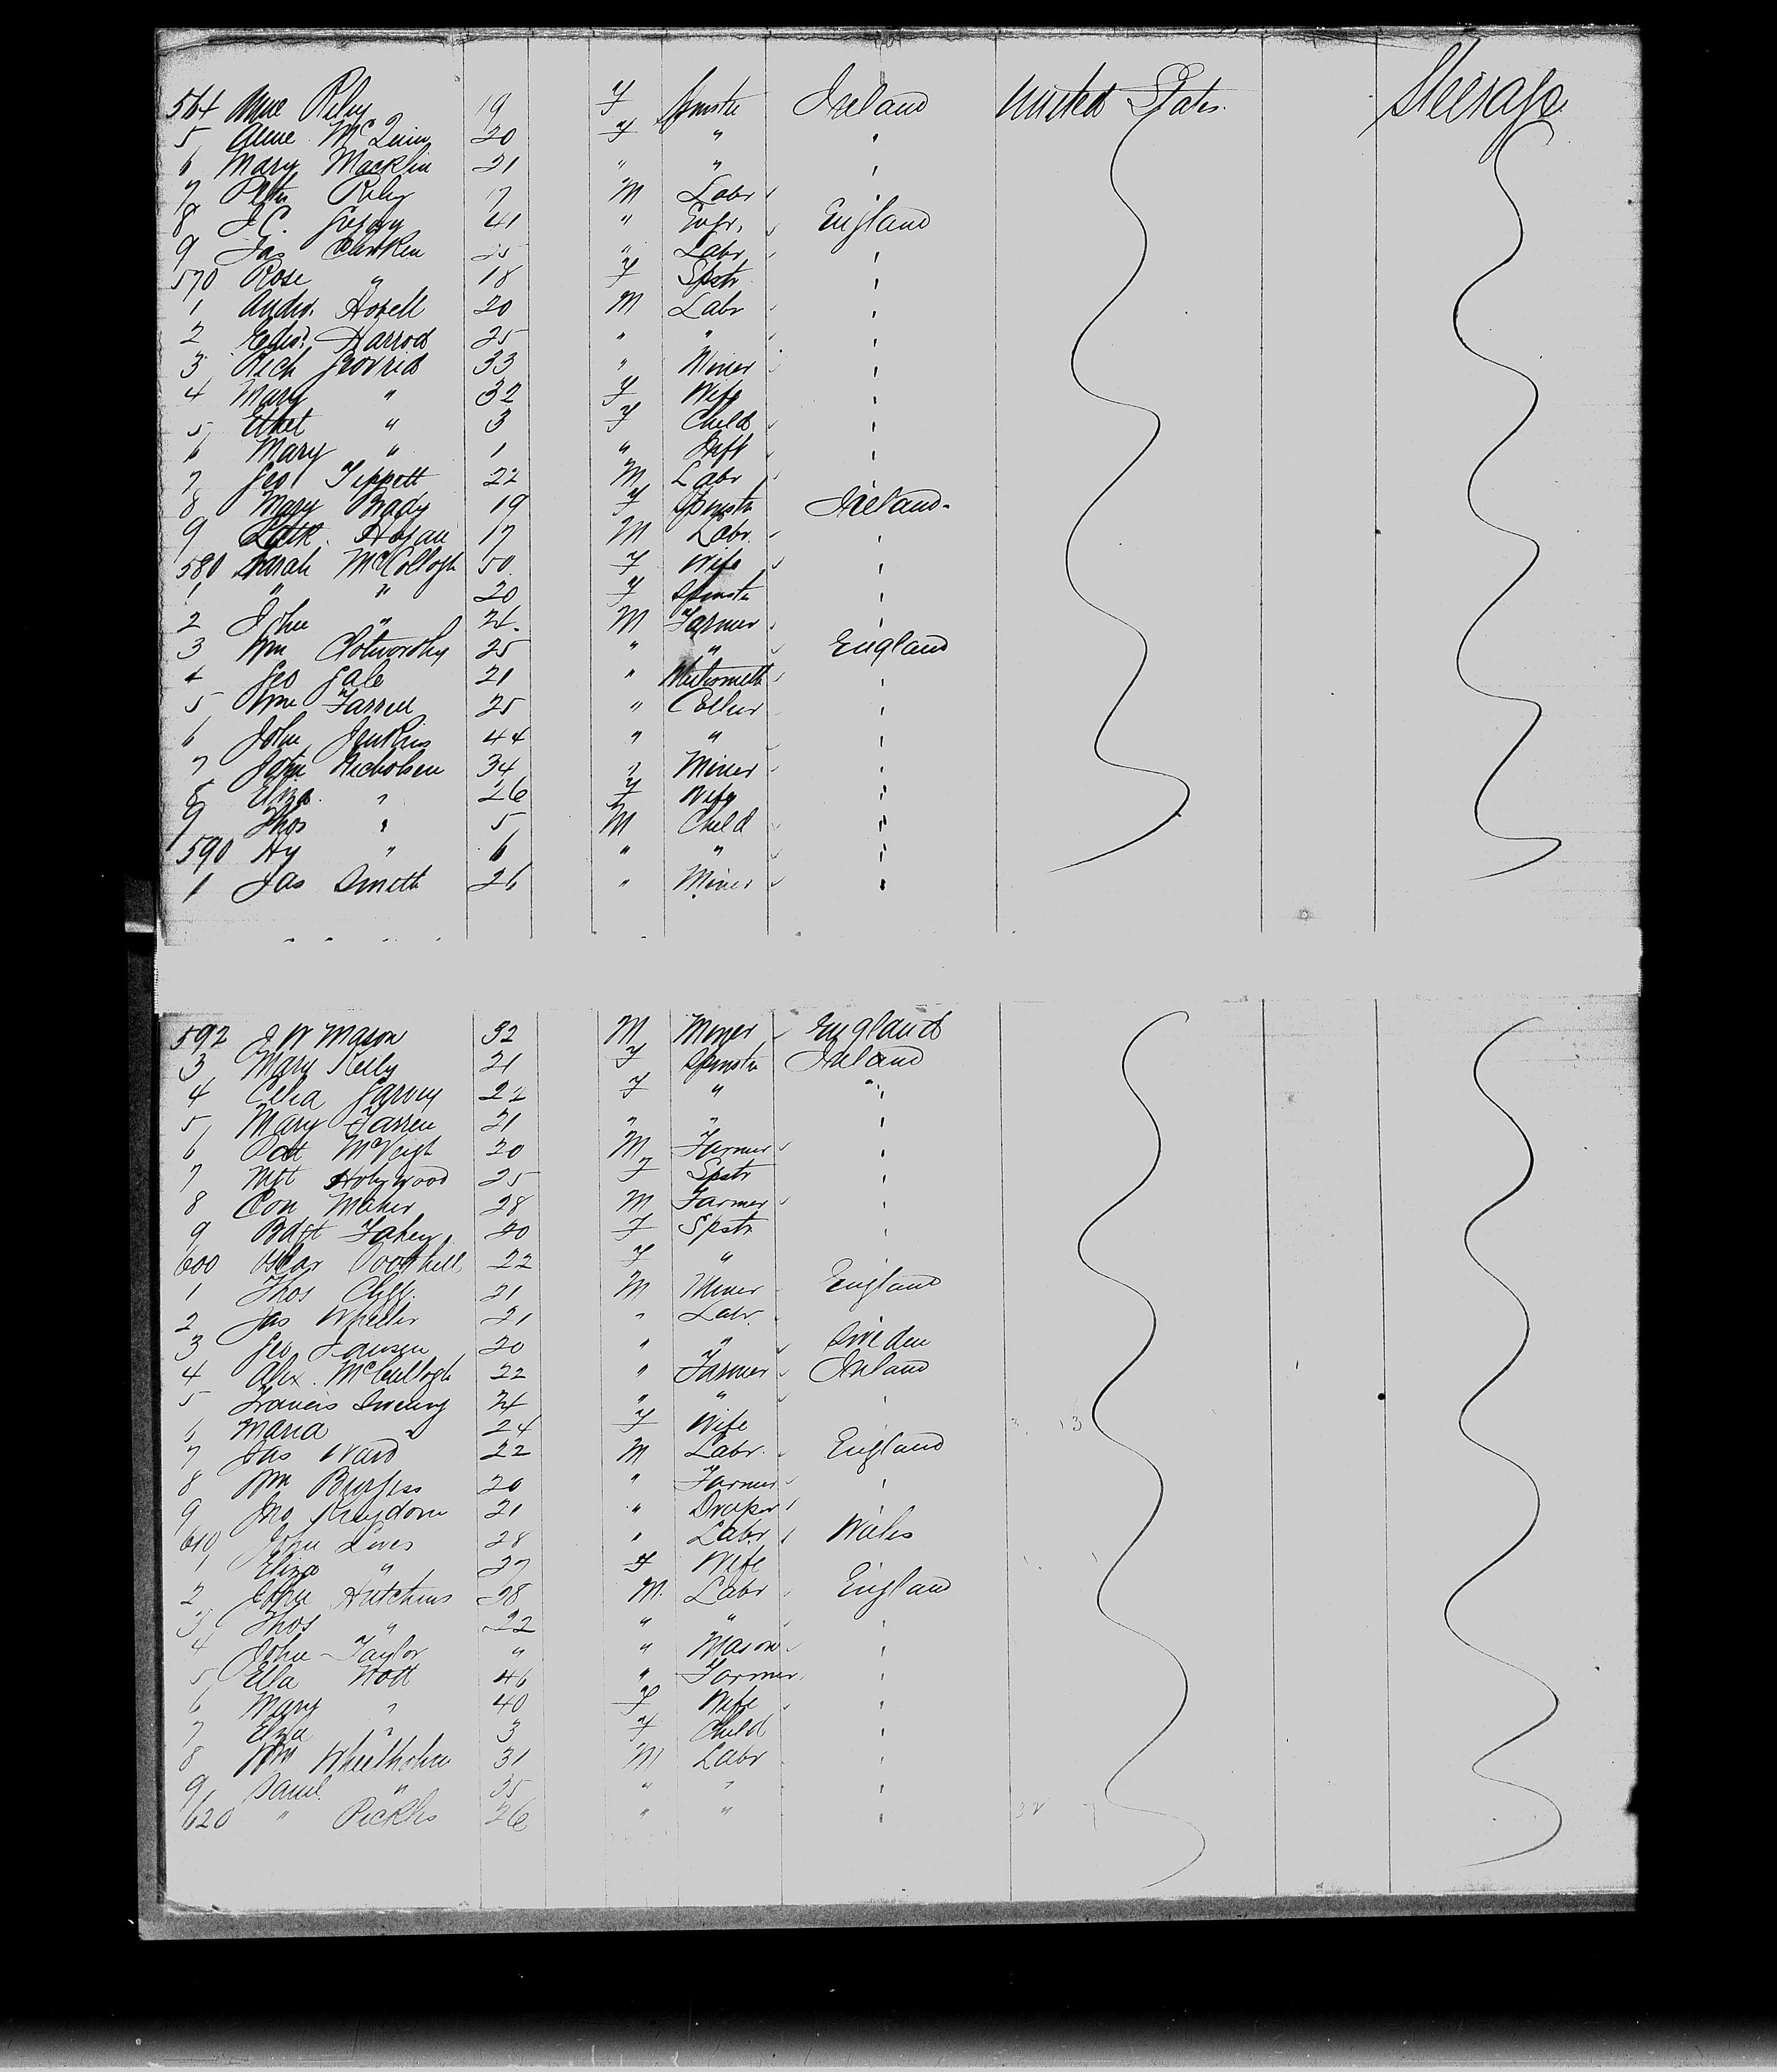 564 Anne Riley 19 F Spinstr Ireland United States Steerage
5 Anne McQuinn 20 F " "
6 Mary Macklin 21 " " "
7 Peter Riley 17 M Labr "
8 J.C. 41 " Engr. England
9 Jas 25 " Labr "
570 Rose " 18 F Spstr "
1 Andw. Hovell 20 M Labr "
2 Edwd Harrod 25 " " "
3 Rich 33 " Miner "
4 Mary " 32 F Wife "
5 Ethel " 3 F Child "
6 Mary " 1 " Inft "
7 Geo Tippett 22 M Labr "
8 Mary Brady 19 F Spinstr Ireland.
9 Patk. Hogan 17 M Labr. "
580 Sarah McCollogh 50 F Wife "
1 " " 20 F Spinstr "
2 John " 24 M Farmer "
3 Wm Clotworthy 25 " " England
4 Geo Gale 21 " "
5 Wm Farrell 25 " Collier "
6 John Jenkins 44 " " "
7 John Nicholson 34 " Miner "
8 Eliza " 26 F Wife "
9 Thos " 5 M Child "
590 Hy " 6 " " "
1 Jas Smith 26 " Miner "
592 J W Mason 32 M Miner England
3 Mary Kelly 21 F Spinstr Ireland
4 Celia Garvey 22 F " "
5 Mary Farren 21 " " "
6 Pat McVeigh 20 M Farmer "
7 Mgt Holywood 25 F Spstr "
8 Con Maher 28 M Farmer "
9 Bdgt Fahey 20 F Spstr "
600 22 F " "
1 Thos Cliff 21 M Miner England
2 Jas Wheeler 21 " Labr.
3 Geo 20 " " Sweden
4 Alex. McCullogh 22 " Farmer Ireland
5 Francis Sweeny 24 " " "
6 Maria " 24 F Wife
7 Jas Ward 22 M Labr. England
8 Wm Burgess 20 " Farmer "
9 Jno 21 " Draper
610 John 28 " Labr Wales
1 Eliza " 27 F Wife
2 John Hutchins 38 M. Labr England
3 Thos " 22 " " "
4 John Taylor " " Mason "
5 Ella Nott 46 " Farmer "
6 Mary " 40 F Wife "
7 Eliza " 3 F Child "
8 Wm 31 M Labr "
9 Saml. " 35 " " "
620 " Pickles 26 " " "